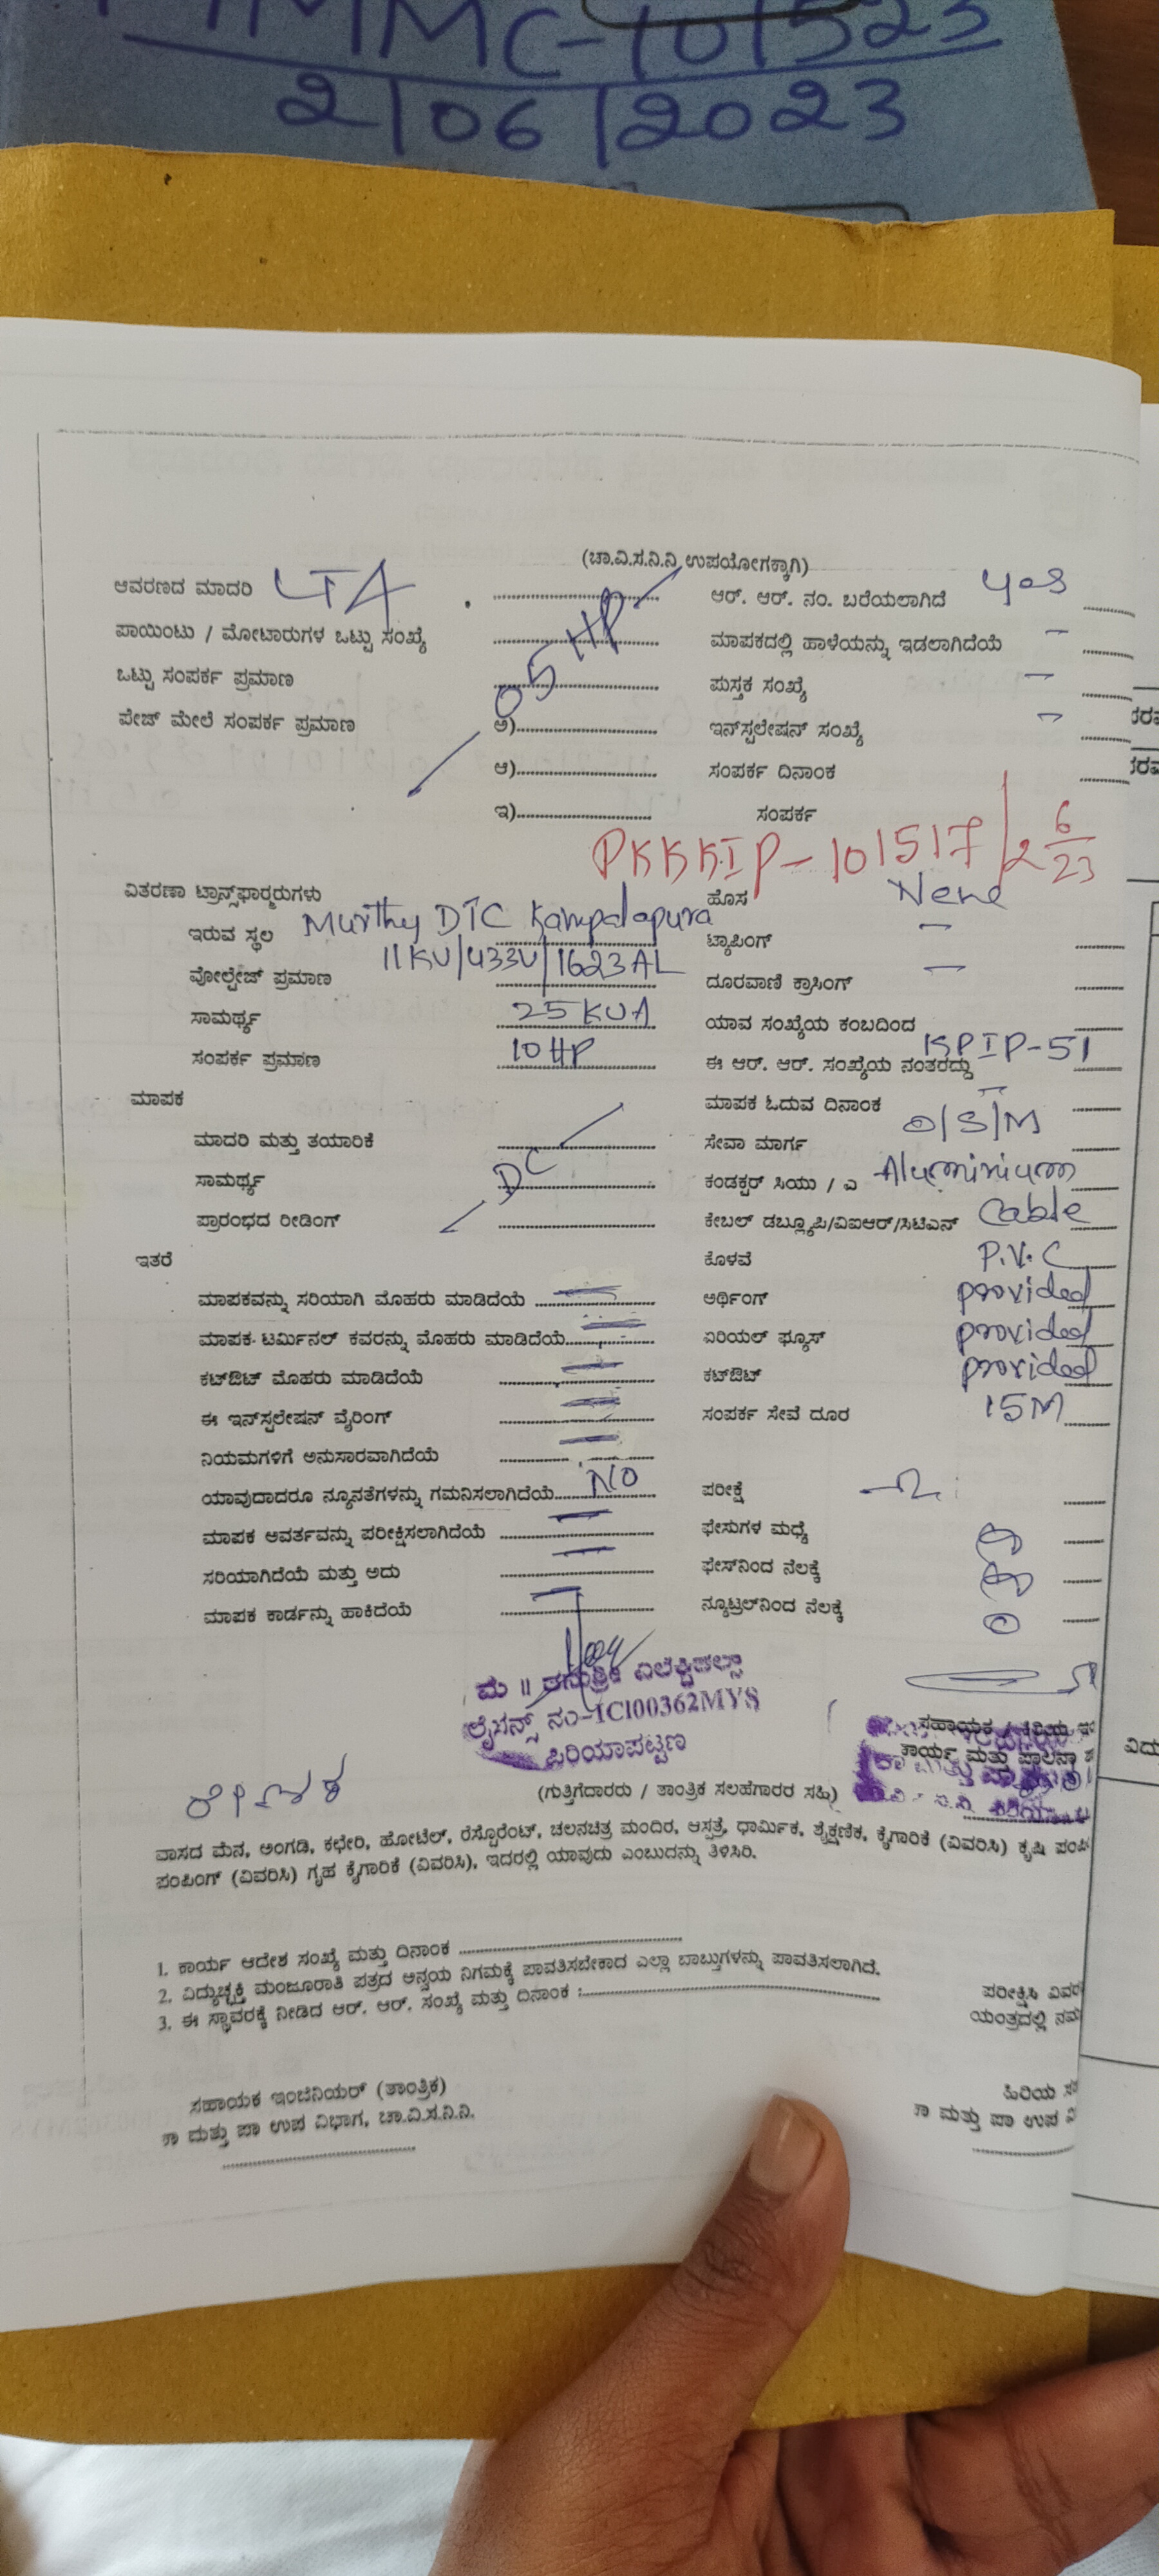 MMC-101523
2/06/2023
(ಚಾ.ವಿ.ಸ.ನಿ.ನಿ ಉಪಯೋಗಕ್ಕಾಗಿ)
ಆವರಣದ ಮಾದರಿ LT4 ಆರ್. ಆರ್. ನಂ. ಬರೆಯಲಾಗಿದೆ yes
ಪಾಯಿಂಟು / ಮೋಟಾರುಗಳ ಒಟ್ಟು ಸಂಖ್ಯೆ ಮಾಪಕದಲ್ಲಿ ಹಾಳೆಯನ್ನು ಇಡಲಾಗಿದೆಯೆ –
ಒಟ್ಟು ಸಂಪರ್ಕ ಪ್ರಮಾಣ 05 HP ಪುಸ್ತಕ ಸಂಖ್ಯೆ –
ಪೇಜ್ ಮೇಲೆ ಸಂಪರ್ಕ ಪ್ರಮಾಣ ಅ) ಇನ್‌ಸ್ಟಲೇಷನ್ ಸಂಖ್ಯೆ –
ಆ) ಸಂಪರ್ಕ ದಿನಾಂಕ
ಇ) ಸಂಪರ್ಕ
PKKKIP-101517/2 6/23
ವಿತರಣಾ ಟ್ರಾನ್ಸ್‌ಫಾರ್‍ಮರುಗಳು ಹೊಸ New
ಇರುವ ಸ್ಥಳ Murthy DTC Kampalapura ಟ್ಯಾಪಿಂಗ್ –
ವೋಲ್ಟೇಜ್ ಪ್ರಮಾಣ 11KV/433V/1623AL ದೂರವಾಣಿ ಕ್ರಾಸಿಂಗ್ –
ಸಾಮರ್ಥ್ಯ 25 KVA ಯಾವ ಸಂಖ್ಯೆಯ ಕಂಬದಿಂದ
ಸಂಪರ್ಕ ಪ್ರಮಾಣ 10 HP ಈ ಆರ್. ಆರ್. ಸಂಖ್ಯೆಯ ನಂತರದ್ದು KPIP-51
ಮಾಪಕ ಮಾಪಕ ಓದುವ ದಿನಾಂಕ –
ಮಾದರಿ ಮತ್ತು ತಯಾರಿಕೆ ಸೇವಾ ಮಾರ್ಗ O/S/M
ಸಾಮರ್ಥ್ಯ DC ಕಂಡಕ್ಟರ್ ಸಿಯು / ಎ Aluminium
ಪ್ರಾರಂಭದ ರೀಡಿಂಗ್ ಕೇಬಲ್ ಡಬ್ಲ್ಯೂಪಿ/ವಿಐಆರ್/ಸಿಟಿಎಸ್ Cable
ಇತರೆ ಕೊಳವೆ P.V.C
ಮಾಪಕವನ್ನು ಸರಿಯಾಗಿ ಮೊಹರು ಮಾಡಿದೆಯೆ ಅರ್ಥಿಂಗ್ provided
ಮಾಪಕ ಟರ್ಮಿನಲ್ ಕವರನ್ನು ಮೊಹರು ಮಾಡಿದೆಯೆ ಏರಿಯಲ್ ಫ್ಯೂಸ್ provided
ಕಟ್‌ಔಟ್ ಮೊಹರು ಮಾಡಿದೆಯೆ ಕಟ್‌ಔಟ್ provided
ಈ ಇನ್‌ಸ್ಟಲೇಷನ್ ವೈರಿಂಗ್ ಸಂಪರ್ಕ ಸೇವೆ ದೂರ 15M
ನಿಯಮಗಳಿಗೆ ಅನುಸಾರವಾಗಿದೆಯೆ
ಯಾವುದಾದರೂ ನ್ಯೂನತೆಗಳನ್ನು ಗಮನಿಸಲಾಗಿದೆಯೆ NO ಪರೀಕ್ಷೆ
ಮಾಪಕ ಅವರ್ತವನ್ನು ಪರೀಕ್ಷಿಸಲಾಗಿದೆಯೆ ಫೇಸುಗಳ ಮಧ್ಯೆ
ಸರಿಯಾಗಿದೆಯೆ ಮತ್ತು ಅದು ಫೇಸ್‌ನಿಂದ ನೆಲಕ್ಕೆ
ಮಾಪಕ ಕಾರ್ಡನ್ನು ಹಾಕಿದೆಯೆ ನ್ಯೂಟ್ರಲ್‌ನಿಂದ ನೆಲಕ್ಕೆ
ಮೆ ॥ ಎಲೆಕ್ಟ್ರಿಕಲ್ಸ್
ಲೈಸನ್ಸ್ ನಂ-1CI00362MYS
ಪಿರಿಯಾಪಟ್ಟಣ
ಸಹಾಯಕ / ಕಿರಿಯ
ಕಾರ್ಯ ಮತ್ತು ಪಾಲನಾ
(ಗುತ್ತಿಗೆದಾರರು / ತಾಂತ್ರಿಕ ಸಲಹೆಗಾರರ ಸಹಿ)
ವಾಸದ ಮನೆ, ಅಂಗಡಿ, ಕಛೇರಿ, ಹೋಟೆಲ್, ರೆಸ್ಟೊರೆಂಟ್, ಚಲನಚಿತ್ರ ಮಂದಿರ, ಆಸ್ಪತ್ರೆ, ಧಾರ್ಮಿಕ, ಶೈಕ್ಷಣಿಕ, ಕೈಗಾರಿಕೆ (ವಿವರಿಸಿ) ಕೃಷಿ ಪಂಪಿ
ಪಂಪಿಂಗ್ (ವಿವರಿಸಿ) ಗೃಹ ಕೈಗಾರಿಕೆ (ವಿವರಿಸಿ), ಇದರಲ್ಲಿ ಯಾವುದು ಎಂಬುದನ್ನು ತಿಳಿಸಿರಿ.
1. ಕಾರ್ಯ ಆದೇಶ ಸಂಖ್ಯೆ ಮತ್ತು ದಿನಾಂಕ
2. ವಿದ್ಯುಚ್ಛಕ್ತಿ ಮಂಜೂರಾತಿ ಪತ್ರದ ಅನ್ವಯ ನಿಗಮಕ್ಕೆ ಪಾವತಿಸಬೇಕಾದ ಎಲ್ಲಾ ಬಾಬ್ತುಗಳನ್ನು ಪಾವತಿಸಲಾಗಿದೆ.
3. ಈ ಸ್ಥಾವರಕ್ಕೆ ನೀಡಿದ ಆರ್. ಆರ್. ಸಂಖ್ಯೆ ಮತ್ತು ದಿನಾಂಕ : ಪರೀಕ್ಷಿಸಿ ವಿವರ
ಯಂತ್ರದಲ್ಲಿ ನಮ
ಸಹಾಯಕ ಇಂಜಿನಿಯರ್ (ತಾಂತ್ರಿಕ) ಹಿರಿಯ ಸ
ಕಾ ಮತ್ತು ಪಾ ಉಪ ವಿಭಾಗ, ಚಾ.ವಿ.ಸ.ನಿ.ನಿ. ಕಾ ಮತ್ತು ಪಾ ಉಪ ವಿ